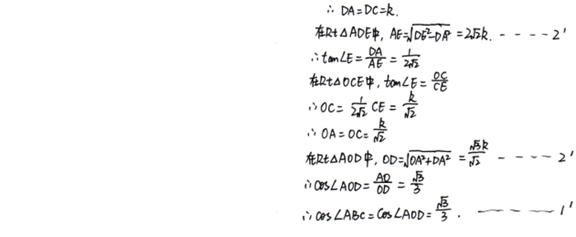 ∴ DA=DC=k.
在Rt△ADE中, AE=√(DE²-DA²)=2√2k. - - - - 2'
∴tan∠E=DA/AE=1/(2√2)
在Rt△OCE中, tan∠E=OC/CE
∴OC=1/(2√2) CE=k/√2
∴OA=OC=k/√2
在Rt△AOD中, OD=√(OA²+DA²)=√3k/√2 - - - - 2'
∴cos∠AOD=AO/OD=√3/3
∴cos∠ABC=cos∠AOD=√3/3. - - - - 1'